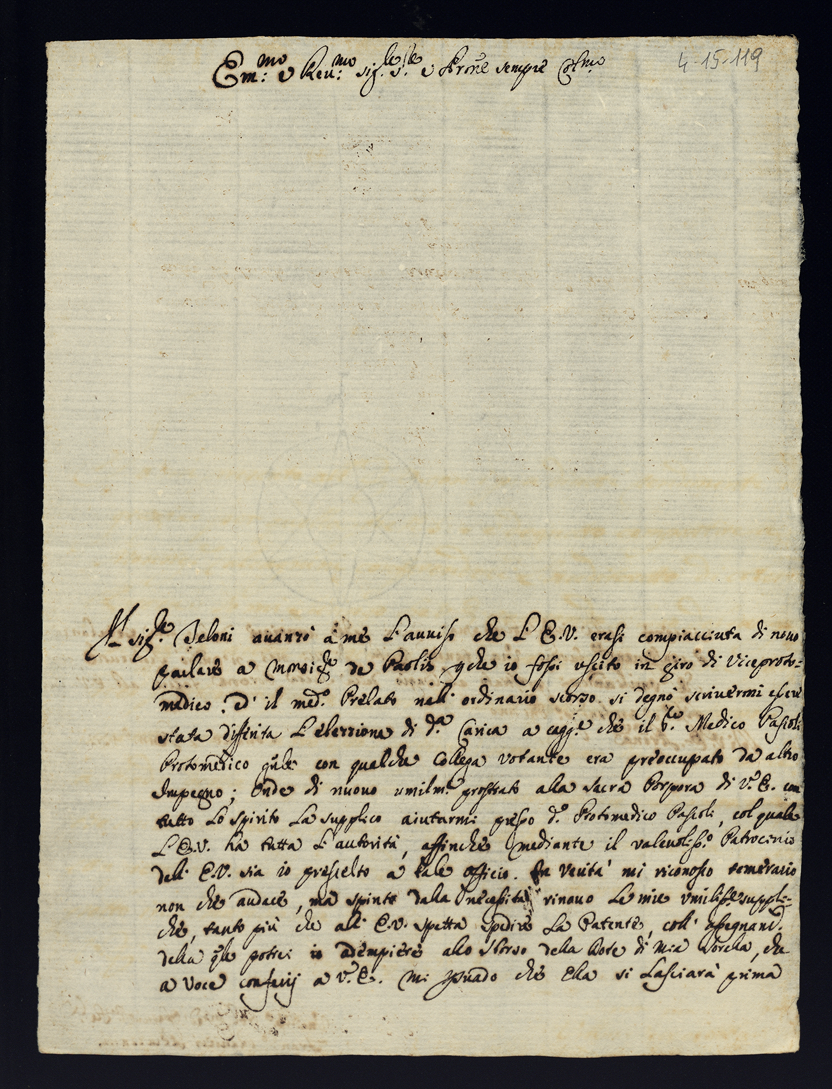 Em:mo e Reu:mo sig.le e Prone sempre Colmo
4-15-119
Il sig.re Beloni auanzò à me l'auuiso che l'E.V. erasi compiacciuta di nouo
parlare a Monsig.re de Paolis che io fossi uscito in giro di Viceproto=
medico. Ed il med.o Prelato nell'ordinario scorso si degnò scriuermi essere
stata differita l'elezzione di d.a Carica a cagg.e che il Medico Pascoli
Protomedico con qualche Collega votante era preoccupato da altro
impegno; Onde di nuouo umilm.e prostrato alla Sacra Porpora di V.E. con
tutto lo spirito la supplico aiutarmi presso d.o Protomedico Pascoli, col quale
l'E.V. ha tutta l'autorità, affinchè mediante il valeuoliss.o Patrocinio
dell'E.V. sia io prescielto à tale officio. In verità mi riconosco temerario
non che audace, ma spinto dalla necessità rinouo le mie umiliss.e suppli=
che, tanto più che all'E.V. spetta spedire la Patente, coll'assegnam.
della qle potrei io adempiere allo sborso della Dote di mia Sorella, che
a voce conferij a V.E. Mi psuado che Ella si lasciarà prima